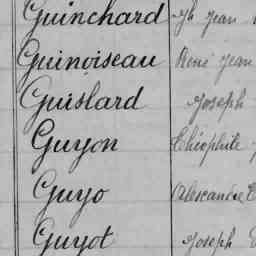 Guinchard Jh Jean
Guinoiseau René Jean
Guislard Joseph
Guyon Théophile
Guyo Alexandre
Guyot Joseph